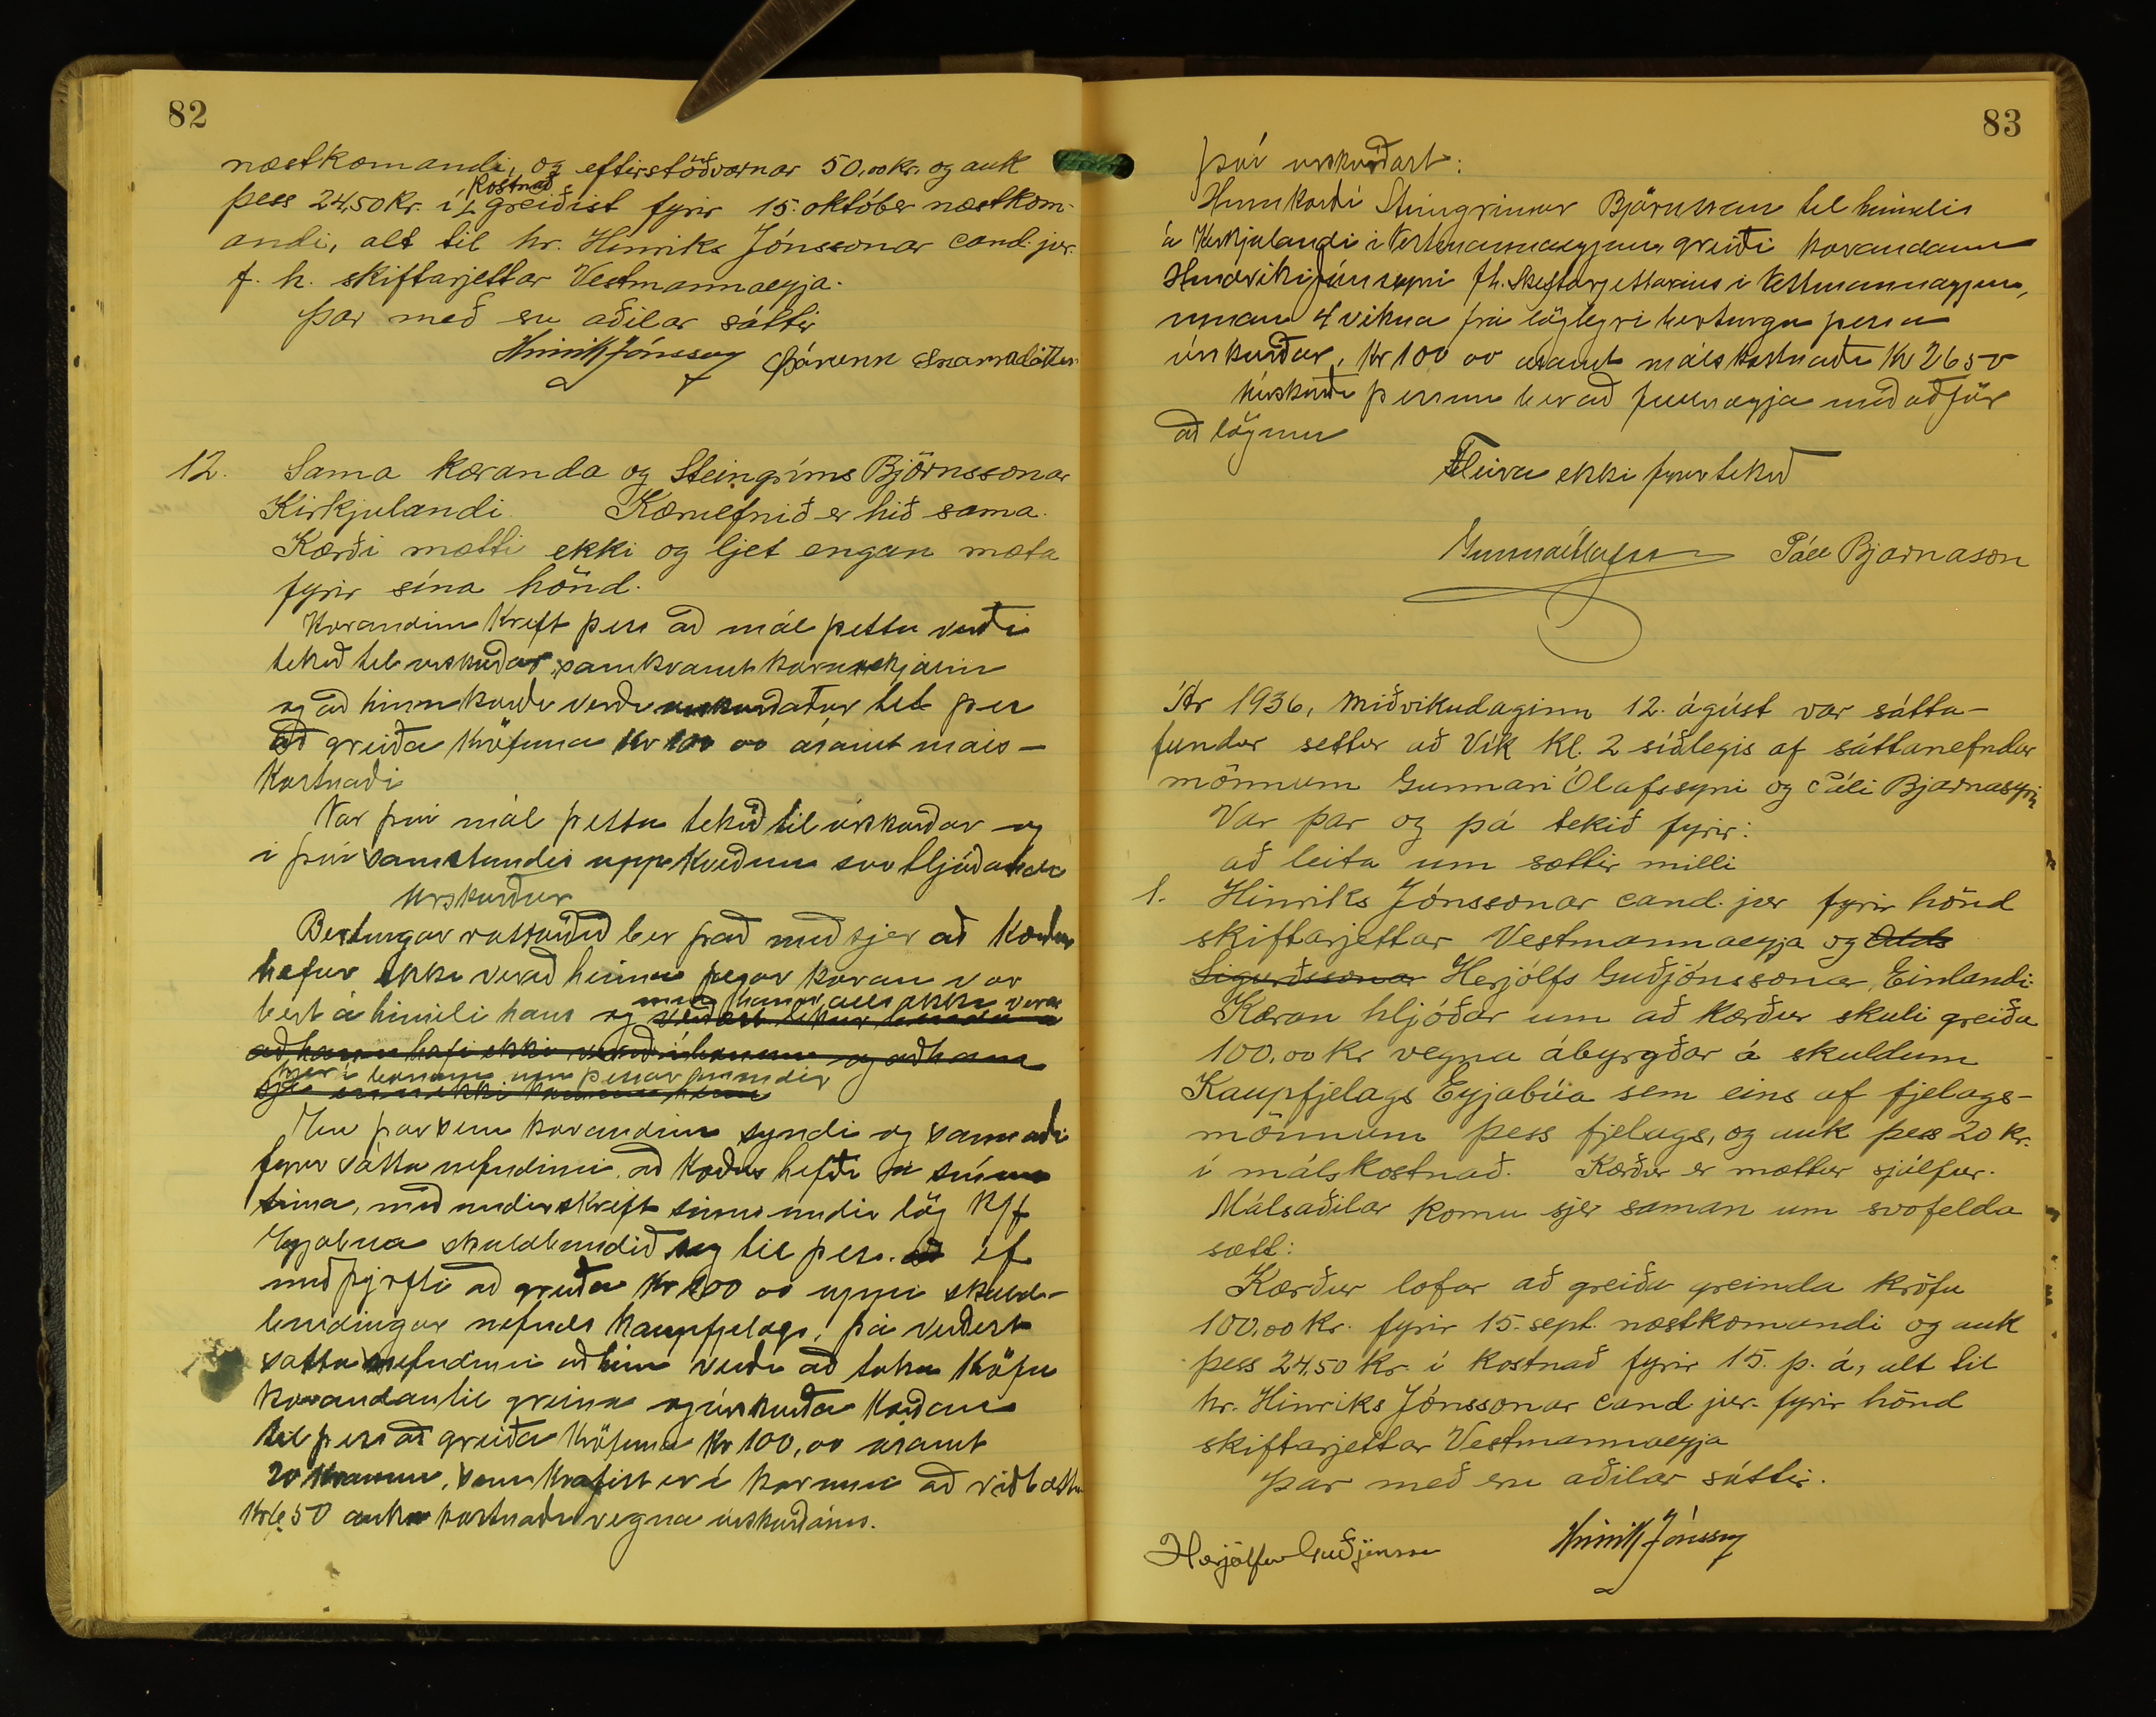 82
næstkomandi, og eftirstöðvarnar 50,00 kr. og auk
þess 24,50 kr. í kostnað greiðist fyrir 15. október næstkom-
andi, alt til hr. Hinriks Jónssonar cand. jur.
f. h. skiftarjettar Vestmannaeyja.
Þar með eru aðilar sáttir
Hinrik Jónsson Þórunn Snorradóttir
12. Sama kæranda og Steingríms Björnssonar
Kirkjulandi. Kæruefnið er hið sama.
Kærði mætti ekki og ljet engan mæta
fyrir sína hönd.
Kærandinn krefst þess að mál þetta verði
tekið til úrskurðar, samkvæmt kæruskjalinu
og að hinn kærði verði úrskurðaður til þess
að greiða kröfuna kr 100 00 ásamt máls-
kostnaði
Var því mál þetta tekið til úrskurðar og
í því samstundis uppkveðinn svo hljóðandi
Úrskurður
Birtingarvottorðið ber það með sjer að kærður
hefur ekki verið heima þegar kæran var
birt á heimili hans og mun hann alls ekki vera
að hann hafi ekki verið í bænum og að hann
hjer í bænum um þessar mundir
sje enn ekki kominn heim
En þar sem kærandinn sýndi og sannaði
fyrir sáttanefndinni að kærður hefði á sínum
tíma, með undirskrift sinni undir lög K/f
Eyjabúa skuldbundið sig til þess að ef
með þyrfti að greiða kr 100 00 uppí skuld-
bindingar nefnds kaupfjelags, þá virðist
sáttanefndinni að hún verði að taka kröfu
kærandans til greina og úrskurða kærðan
til þess að greiða kröfuna kr 100,00 ásamt
20 krónum, sem krafist er í kærunni að viðbættum
kr 6.50 auka kostnaði vegna úrskurðarins.
83
Því úrskurðast:
Hinn kærði Steingrímur Björnsson til heimilis
á Kirkjulandi í Vestmannaeyjum greiði kærandanum
Hinriki Jónssyni f.h. skiftarjettarins í Vestmannaeyjum,
innan 4 vikna frá löglegri birtingu þessa
úrskurðar, kr 100 00 ásamt málskostnaði kr 26 50
Úrskurði þessum ber að fullnægja með aðför
að lögum
Fleira ekki fyrir tekið
Gunnar Ólafsson Páll Bjarnason
Ár 1936, miðvikudaginn 12. ágúst var sátta-
fundur settur að Vík kl. 2 síðdegis af sáttanefndar
mönnum Gunnari Ólafssyni og Páli Bjarnasyni
Var þar og þá tekið fyrir:
að leita um sættir milli
1. Hinriks Jónssonar cand. jur fyrir hönd
skiftarjettar Vestmannaeyja og Odds
Sigurðssonar Herjólfs Guðjónssonar, Einlandi.
Kæran hljóðar um að kærður skuli greiða
100,00 kr vegna ábyrgðar á skuldum
Kaupfjelags Eyjabúa sem eins af fjelags-
mönnum þess fjelags, og auk þess 20 kr.
í málskostnað. Kærður er mættur sjálfur.
Málsaðilar komu sjer saman um svofelda
sætt:
Kærður lofar að greiða greinda kröfu
100,00 kr. fyrir 15. sept. næstkomandi og auk
þess 24,50 kr. í kostnað fyrir 15. þ. á, alt til
hr. Hinriks Jónssonar cand. jur. fyrir hönd
skiftarjettar Vestmannaeyja
Þar með eru aðilar sáttir.
Herjólfur Guðjónsson Hinrik Jónsson